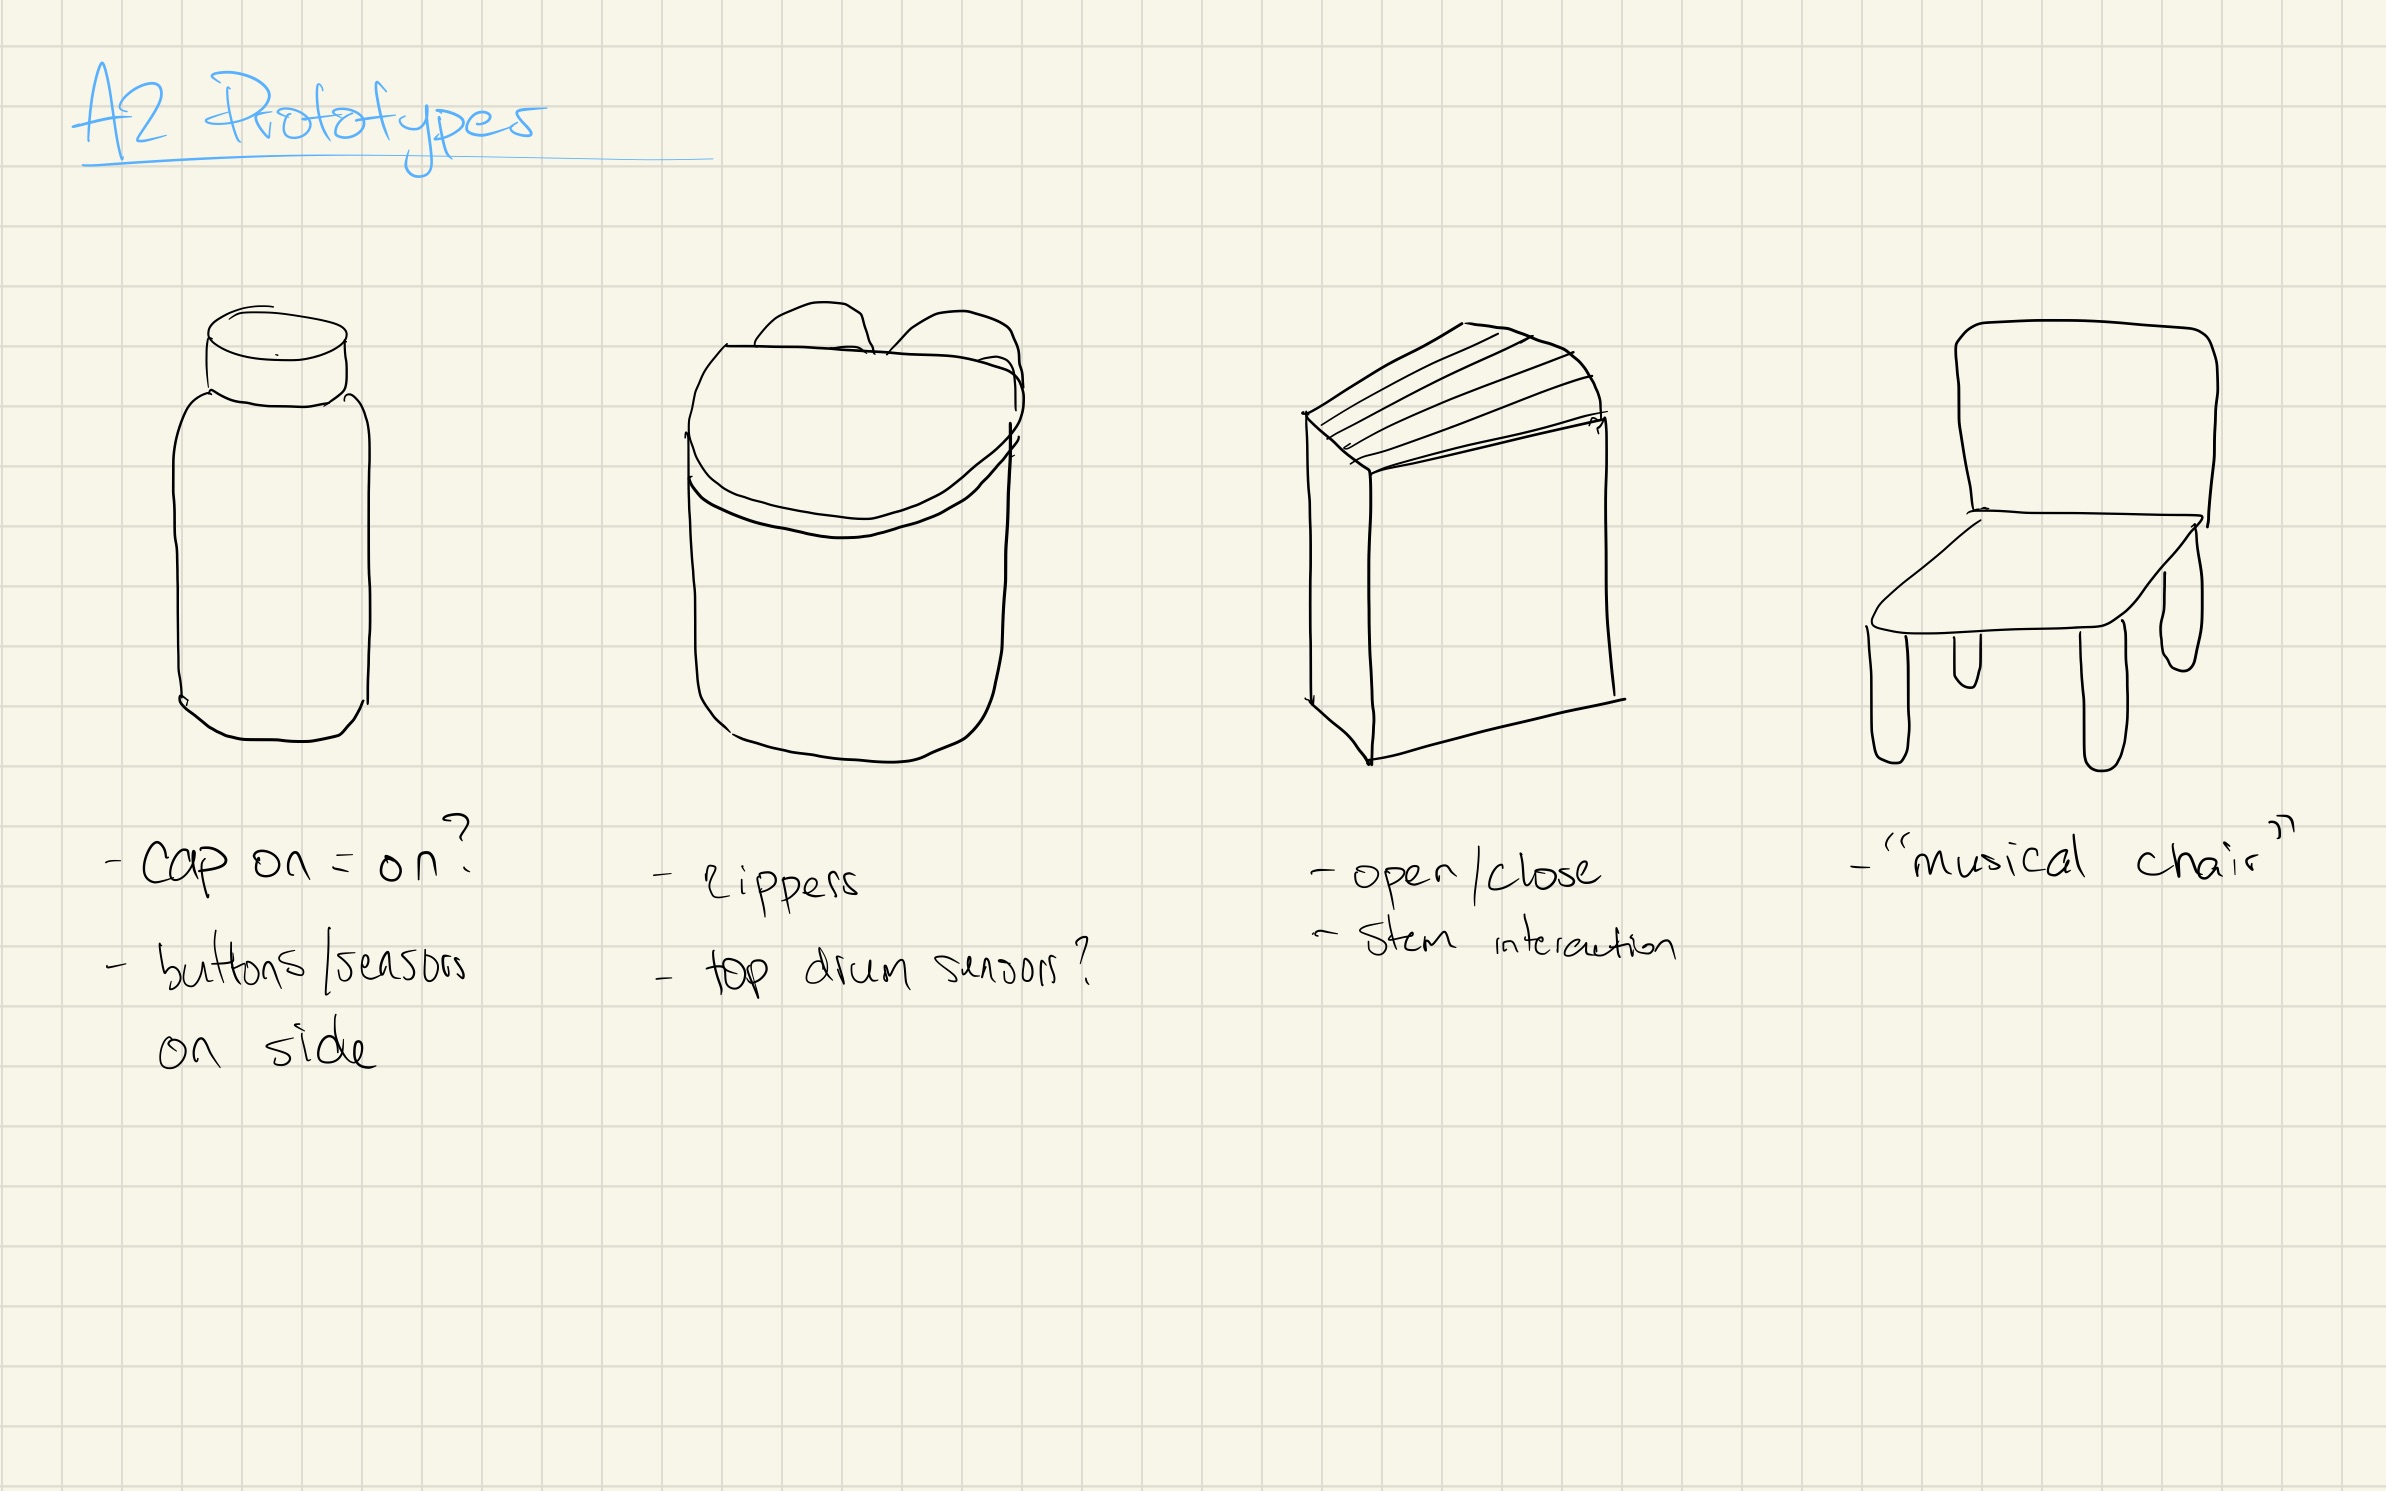 A2 Prototypes
- cap on = on?
- buttons/sensors
on side
- zippers
- top drum sensor?
- open/close
- stem interaction
- "musical chair"